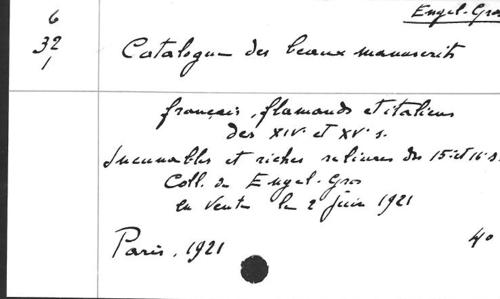 Engel-Gros
6
32
1
Catalogue des beaux manuscrits
français, flamands et italiens
des XIVe et XVe s.
Incunables et riches reliures des 15e et 16e s.
Coll. de Engel-Gros
en vente le 2 juin 1921
Paris, 1921
4o